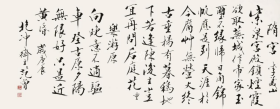 隋宮
紫泉宮殿鎖煙霞
欲取蕪城作帝家玉
璽不緣歸日角錦
帆應是到天涯於
今腐草無螢火終
古垂楊有暮鴉地
下若逢陳後主豈
宜重問後庭花
樂遊原
向晚意不適驅
車登古原夕陽
無限好只是近
黃昏